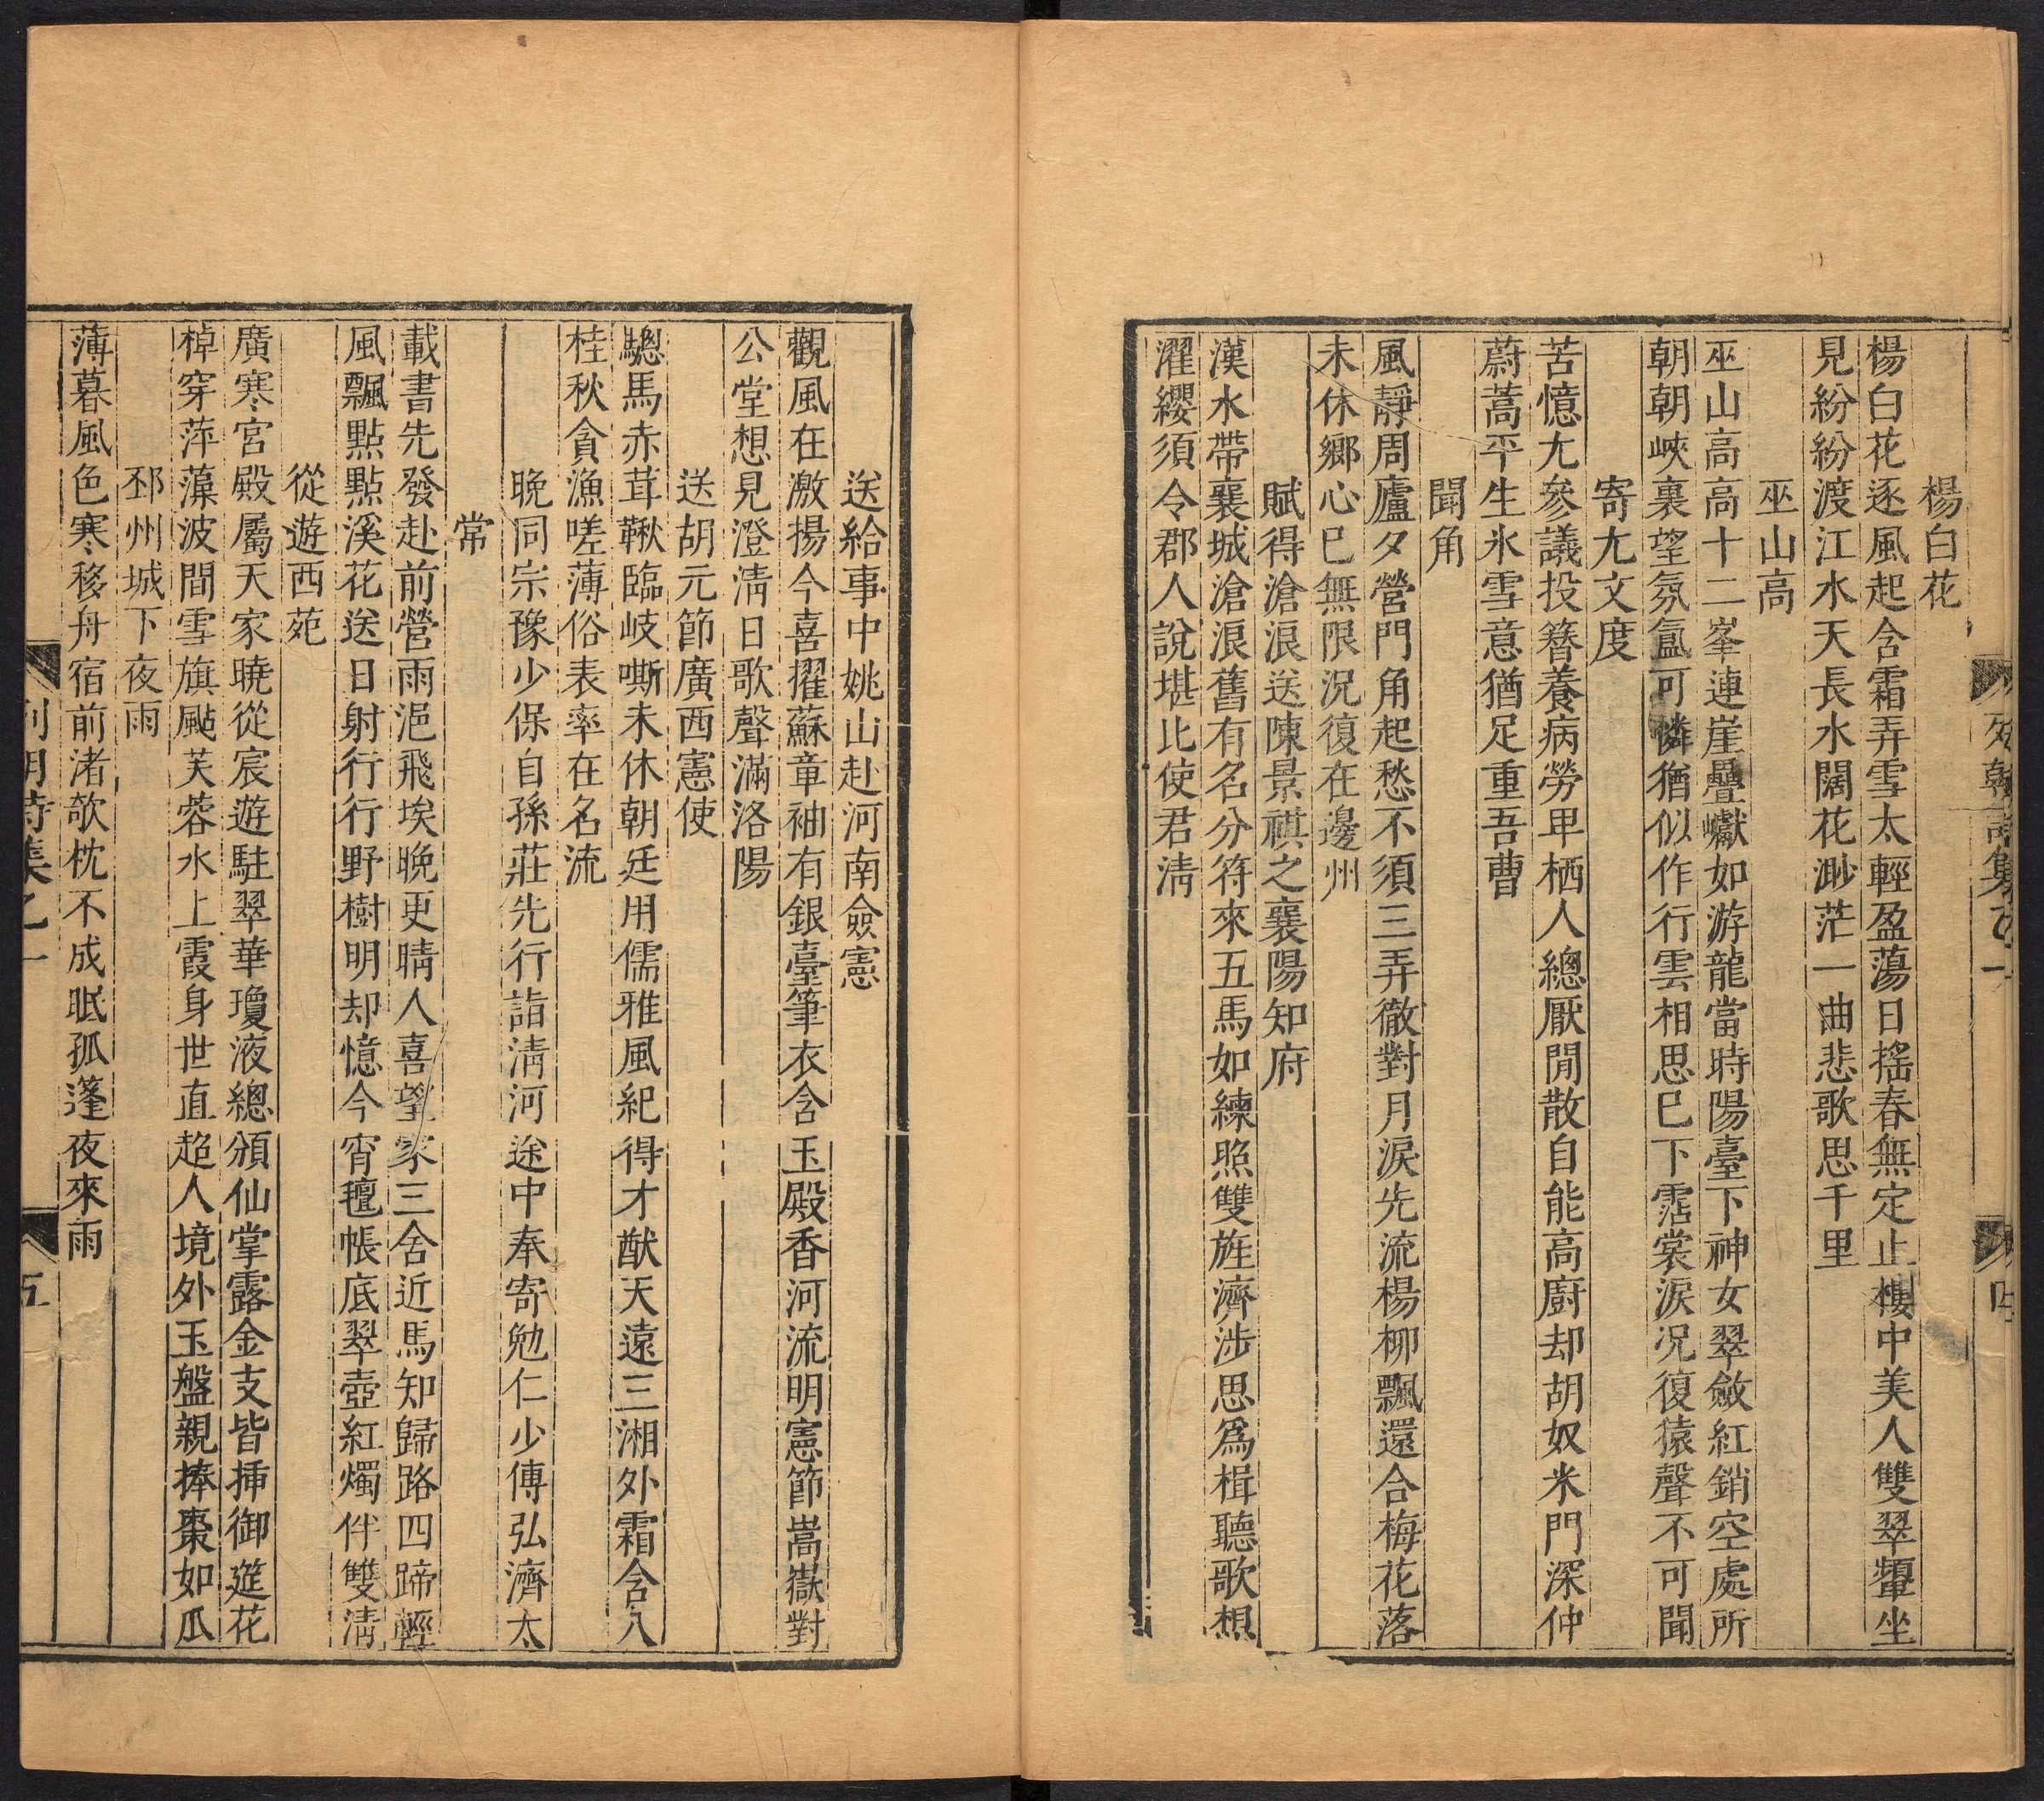 楊白花
楊白花逐風起含霜弄雪太輕盈蕩日搖春無定止樓中美人雙翠顰坐
見紛紛渡江水天長水闊花渺茫一曲悲歌思千里
巫山高
巫山高高十二峯連崖疊巘如游龍當時陽臺下神女翠斂紅銷空處所
朝朝峽裏望氛氳可憐猶似作行雲相思巳下霑裳淚況復猿聲不可聞
寄尢文度
苦憶尢參議投簪養病勞甲栖人總厭閒散自能高廚却胡奴米門深仲
蔚蒿平生氷雪意猶足重吾曹
聞角
風靜周廬夕營門角起愁不須三弄徹對月淚先流楊柳飄還合梅花落
未休鄉心巳無限況復在邊州
賦得滄浪送陳景祺之襄陽知府
漢水帶襄城滄浪舊有名分符來五馬如練照雙旌濟涉思爲楫聽歌想
濯纓須令郡人說堪比使君清
送給事中姚山赴河南僉憲
觀風在激揚今喜擢蘇章袖有銀臺筆衣含玉殿香河流明憲節嵩嶽對
公堂想見澄清日歌聲滿洛陽
送胡元節廣西憲使
驄馬赤茸鞦臨岐嘶未休朝廷用儒雅風紀得才猷天遠三湘外霜含八
桂秋貪漁嗟薄俗表率在名流
晩同宗豫少保自孫莊先行詣清河途中奉寄勉仁少傅弘濟太
常
載書先發赴前營雨浥飛埃晩更晴人喜望家三舍近馬知歸路四蹄輕
風飄點點溪花送日射行行野樹明却憶今宵氊帳底翠壺紅燭伴雙清
從遊西苑
廣寒宮殿屬天家曉從宸遊駐翠華瓊液總頒仙掌露金支皆揷御筵花
棹穿萍藻波間雪旗颭芙蓉水上霞身世直超人境外玉盤親捧棗如瓜
邳州城下夜雨
薄暮風色寒移舟宿前渚欹枕不成眠孤蓬夜來雨
列朝詩集乙一
五